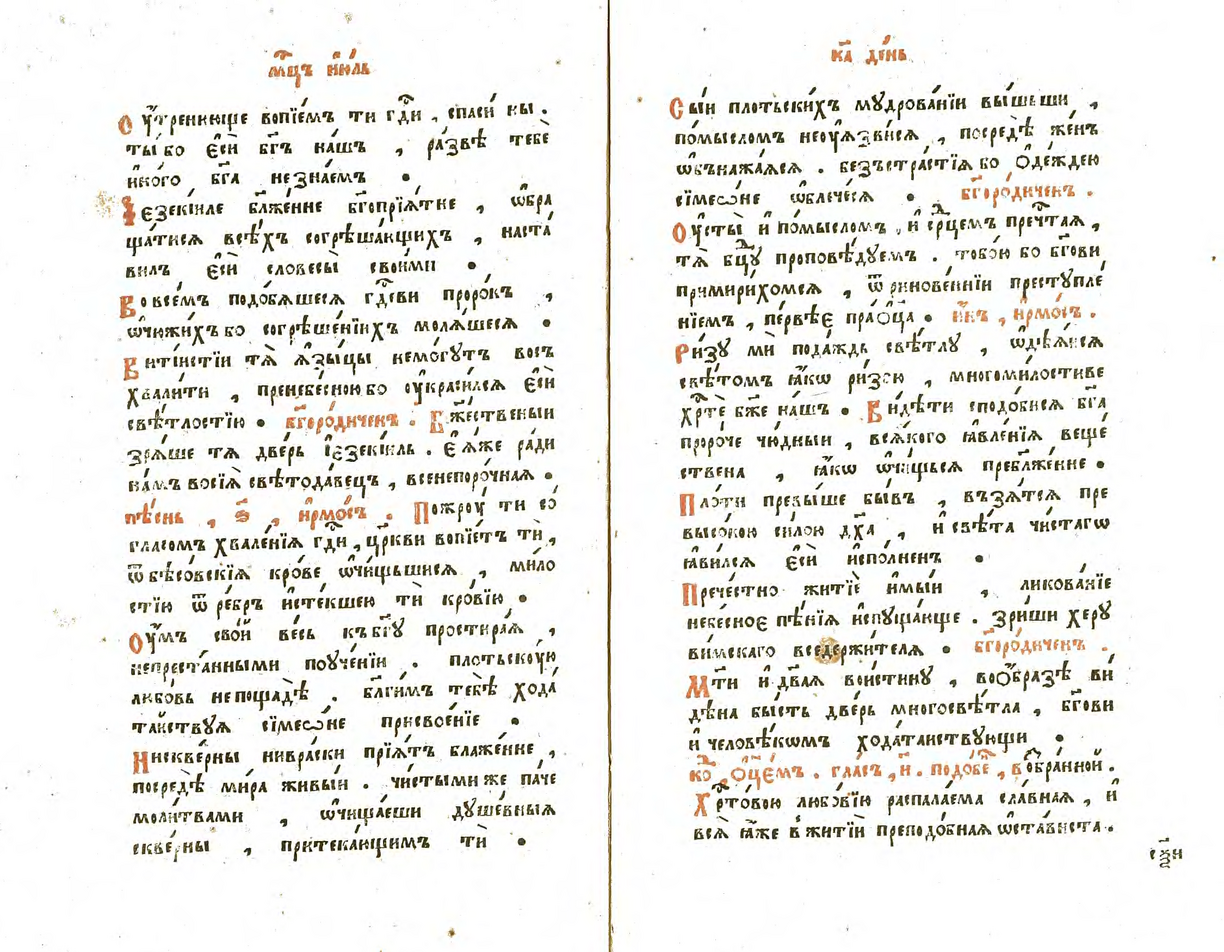 мц҃ъ и҆ю́ль
Оу҆́тренюще вопїе́мъ ти гд҇и , спаси́ ны .
ты́ бо є҆сѝ бг҃ъ на́шъ , ра́звѣ тебѐ
и҆но́го бг҃а незна́емъ .
І҆езекі́иле бл҃же́нне бг҃опрїѧ́тне , ѡ҆бра
ща́тисѧ всѣ́хъ согрѣша́ющихъ , наста́
вилъ є҆сѝ словесы̀ свои́ми .
Во все́мъ подобѧ́шесѧ гд҇еви проро́къ ,
ѡ҆чюжи́хъ бо согрѣше́нїихъ молѧ́шесѧ .
Вити́истїи тѧ̀ ꙗ҆зы́цы немо́гутъ восъ
хвали́ти , пренебе́сною бо оу҆краси́лсѧ є҆сѝ
свѣ́тлостїю . бг҃оро́диченъ . Бж҃е́ственыи
зрѧ́ше тѧ̀ две́рь і҆езекі́иль . є҆ѧ́же ра́ди
на́мъ восїѧ̀ свѣтода́вецъ , всенепоро́чнаѧ .
пѣ́снь , ѕ҃ , и҆рмо́съ . Пожроу́ ти со́
гла́сомъ хвале́нїѧ гд҇и , цр҃кви вопїе́тъ тѝ ,
ѿ бѣсо́вскїѧ кро́ве ѡ҆чи́щьшисѧ , ми́ло
стїю ѿ ре́бръ и҆сте́кшею тѝ кро́вїю .
Оу҆́мъ сво́й ве́сь къ бг҃у простира́ѧ ,
непреста́нными поуче́нїи . пло́тьскоую
любо́вь непощадѣ̀ . бл҃ги́мъ тебѣ̀ хода́
та́йствуѧ сїмео́не присвое́нїе .
Нискве́рны нивра́ски прїѧ́тъ блаже́нне ,
посредѣ̀ ми́ра живы́и . чи́стыми же па́че
моли́твами , ѡ҆чища́еши душе́вныѧ
скве́рны , притека́ющимъ тѝ .
к҃а де́нь
Сы́и пло́тьскихъ мꙋдрова́нїи вы́шьши ,
по́мысломъ неоуѧ҆зви́сѧ , посредѣ̀ же́нъ
ѡ҆бънажа́ѧсѧ . безъстра́стїѧ бо ѻ҆де́ждею
сїмео́не ѡ҆блече́сѧ . бг҃оро́диченъ .
Оу҆сты̀ и҆ по́мысломъ , и҆ ср҃цемъ пречⷭ҇таѧ ,
тѧ̀ бц҃ꙋ проповѣ́дуемъ . тобо́ю бо бг҃ови
примири́хомсѧ , ѿриновенїи престꙋпле́
нїемъ , пе́рвѣе праѻ҆́ца . и҆́нъ , и҆рмо́съ .
Ри́зꙋ мѝ пода́ждь свѣ́тлꙋ , ѡ҆дѣѧ́исѧ
свѣ́томъ ꙗ҆́кѡ ри́зою , многоми́лостиве
хрⷭ҇тѐ бж҃е на́шъ . Ви́дѣти сподо́бисѧ бг҃а
проро́че чю́дныи , всѧ́кого ꙗ҆вле́нїѧ веще́
ствена , ꙗ҆́кѡ ѡ҆чи́щьсѧ пребл҃же́нне .
Пло́ти превы́ше бы́въ , въ́зѧ́тсѧ пре
высо́кою си́лою дх҃а , и҆ свѣ́та чи́стагѡ
ꙗ҆ви́лсѧ є҆сѝ и҆спо́лненъ .
Пречⷭ҇стно житїѐ и҆мы́и , ликова́нїе
небе́сноє пѣ́нїѧ и҆спꙋща́юще . зри́ши херꙋ
ви́мскаго вседержи́телѧ . бг҃оро́диченъ .
Мт҃и и҆ два҃ѧ вои́стинꙋ , воѻ҆́бразѣ ви́
дѣна бы́сть две́рь многосвѣ́тла , бг҃ови
и҆ человѣ́кѡмъ хода́таиствꙋющи .
ко҇ , ѻ҆ц҃е́мъ . гла́съ , и҃ . подо́бе҇ , вобра́нной .
Хрⷭ҇то́вою любо́вїю распала́ема сла́внаѧ , и҆
всѧ̀ ꙗ҆́же в житїѝ преподо́бнаѧ ѡ҆ста́виста .